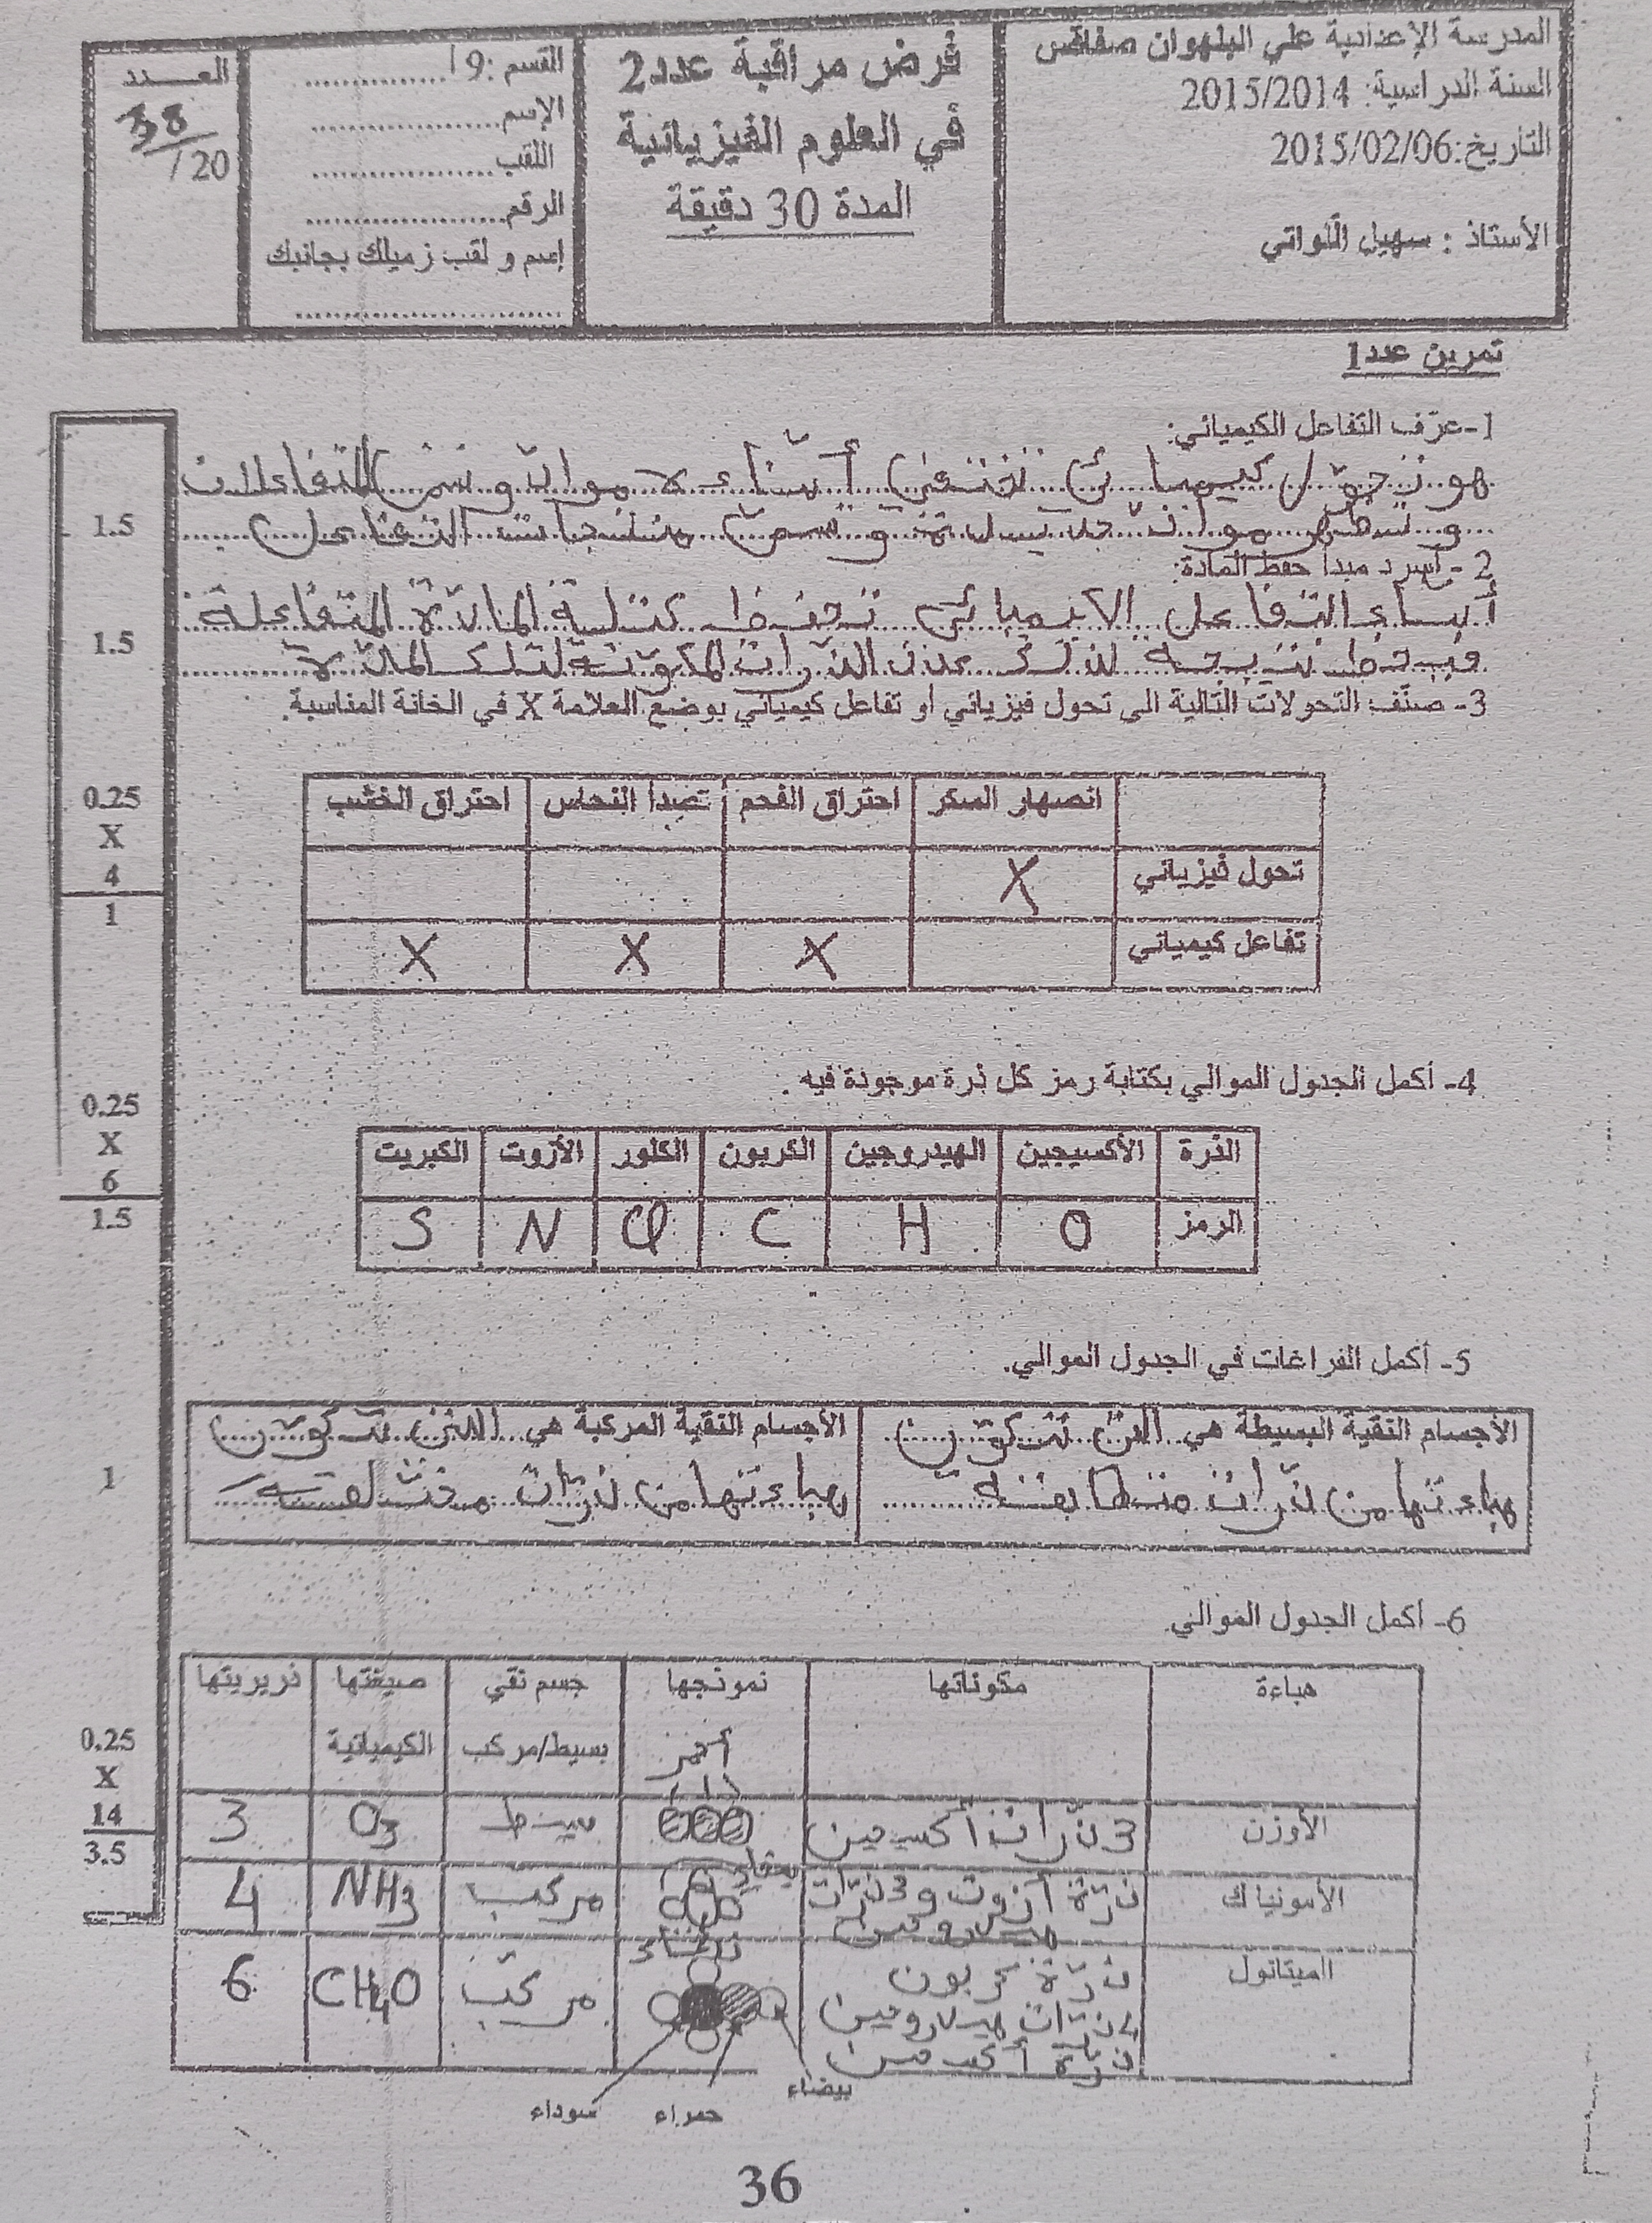 المدرسة الإعدادية علي البلهوان صفاقس
السنة الدراسية: 2015/2014
التاريخ:2015/02/06
الأستاذ : سهيل اللواتي
فرض مراقبة عدد2
في العلوم الفيزيائية
المدة 30 دقيقة
القسم :9أ
الإسم
اللقب
الرقم
إسم و لقب زميلك بجانبك
العـــدد
38
/20
تمرين عدد1
1-عرّف التفاعل الكيميائي:
هو تحوّل كيميائي تختفي أثناءه مواد وتسمّى المتفاعلات
و تظهر مواد جديدة و تسمّى منتجات التفاعل
1.5
2 - أسرد مبدأ حفظ المادة:
أثناء التفاعل الكيميائي تحفظ كتلة المادة المتفاعلة
نتيجة لذلك عدد الذرات المكوّنة لتلك المادة
1.5
3- صنّف التحولات التالية الى تحول فيزيائي أو تفاعل كيميائي بوضع العلامة X في الخانة المناسبة.
انصهار السكر احتراق الفحم تصدأ النحاس احتراق الخشب
تحول فيزيائي X
تفاعل كيميائي X X X
0.25
X
4
1
4- أكمل الجدول الموالي بكتابة رمز كل ذرة موجودة فيه .
الذرة الأكسيجين الهيدروجين الكربون الكلور الأزوت الكبريت
الرمز O H C Cl N S
0.25
X
6
1.5
5- أكمل الفراغات في الجدول الموالي.
الأجسام النقية البسيطة هي التي تتكوّن
هباءتها من ذرّات متطابقة
الأجسام النقية المركبة هي التي تتكوّن
هباءتها من ذرّات مختلفة
1
6- أكمل الجدول الموالي
هباءة مكوناتها نموذجها جسم نقي بسيط/مركب صيغتها الكيميائية ذريريتها
أحمر
الأوزن 3 ذرّات أكسجين بسيط O3 3
الأمونياك ذرّة أزوت و3 ذرّات هيدروجين مركب NH3 4
بيضاء
زرقاء
الميتانول ذرّة كربون 4 ذرّات هيدروجين ذرّة أكسجين مركّب CH4O 6
بيضاء
حمراء
سوداء
0.25
X
14
3.5
36